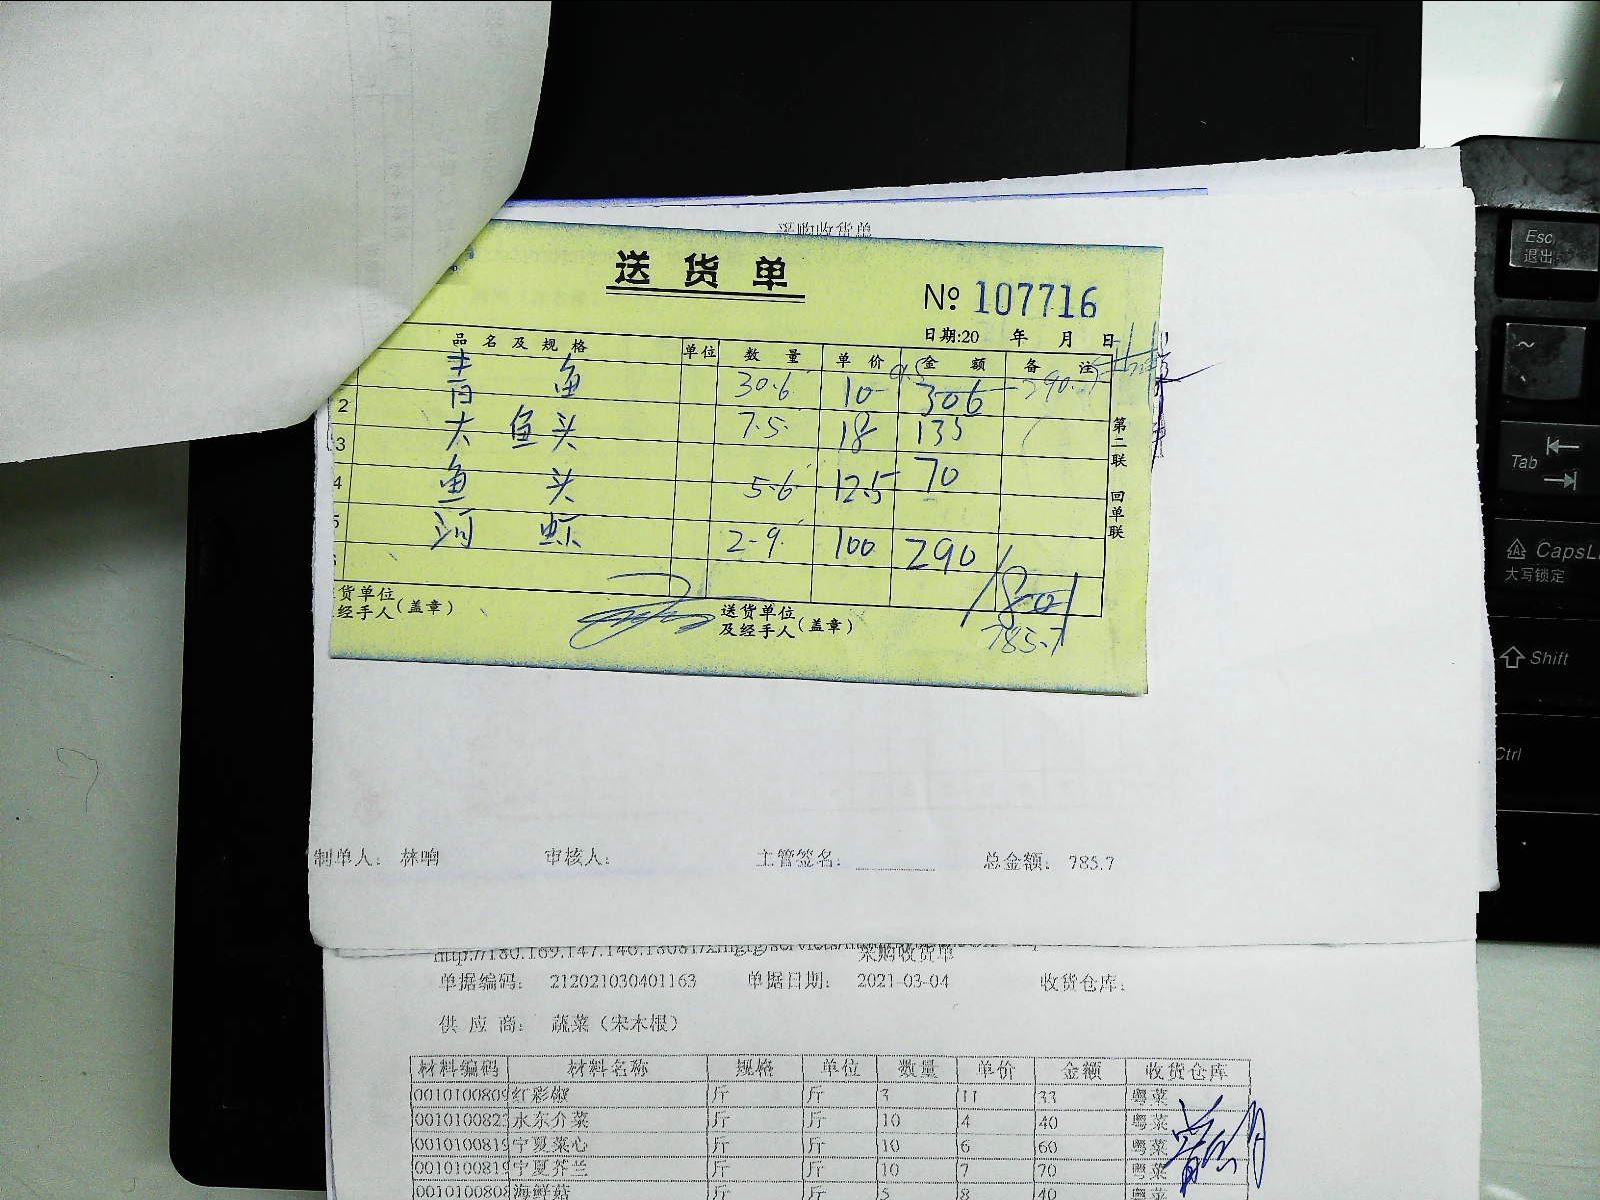 采购收货单
送货单
№ 107716
日期:20 年 月 日
品名及规格 单位 数量 单价 金额 备注
青鱼 30.6 10 9.5 306 290.7
2 大鱼头 7.5 18 135
3
4 鱼头 5.6 12.5 70
5 河虾 2.9 100 290
801
785.7
货单位
经手人(盖章)
送货单位
及经手人(盖章)
第二联 回单联
制单人: 林响 审核人: 主管签名: 总金额: 785.7
采购收货单
单据编码: 212021030401163 单据日期: 2021-03-04 收货仓库:
供应商: 蔬菜(宋木根)
材料编码 材料名称 规格 单位 数量 单价 金额 收货仓库
0010100809 红彩椒 斤 斤 3 11 33 粤菜
001010082 水东介菜 斤 斤 10 4 40 粤菜
001010081 宁夏菜心 斤 斤 10 6 60 粤菜
001010081 宁夏芥兰 斤 斤 10 7 70 粤菜
001010080 海鲜菇 斤 斤 5 8 40 粤菜
Esc
退出
~
Tab
CapsL
大写锁定
Shift
Ctrl